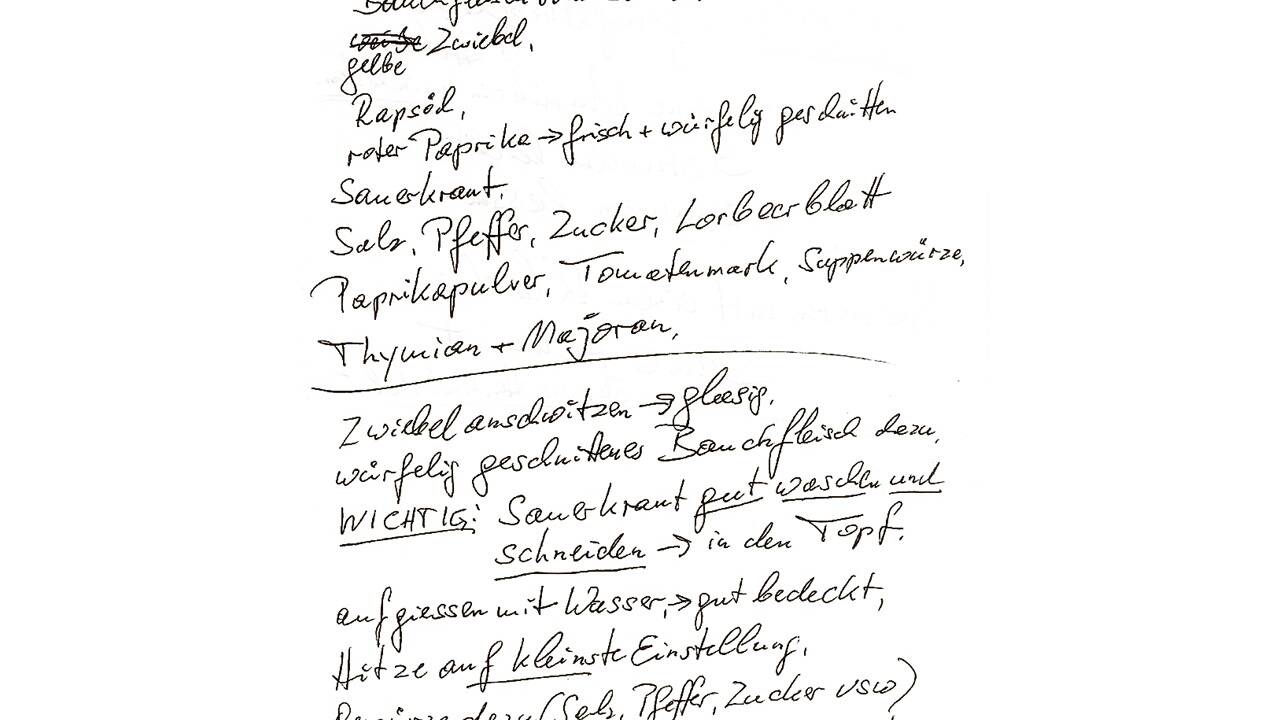 weiße Zwiebel,
gelbe
Rapsöl,
roter Paprika → frisch + würfelig geschnitten
Sauerkraut,
Salz, Pfeffer, Zucker, Lorbeerblatt
Paprikapulver, Tomatenmark, Suppenwürze,
Thymian + Majoran,
Zwiebel anschwitzen → glasig,
würfelig geschnittenes Bauchfleisch dazu,
WICHTIG: Sauerkraut gut waschen und
schneiden → in den Topf.
aufgiessen mit Wasser, → gut bedeckt,
Hitze auf kleinste Einstellung,
dazu (Salz, Pfeffer, Zucker usw)